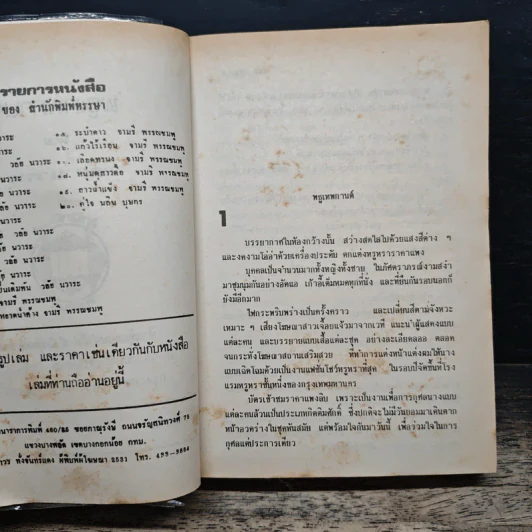 รายการหนังสือ
ของ สำนักพิมพ์หรรษา
วาระ ๑๕. ระบำดาว จามรี พรรณชมพู
วาระ ๑๖. จามรี พรรณชมพู
วลัย นวาระ ๑๗. เลือดทรนง จามรี พรรณชมพู
นวาระ ๑๘. หนุ่มดูสาวดื้อ จามรี พรรณชมพู
วลัย นวาระ ๑๙. สาวน้ำแข็ง จามรี พรรณชมพู
นวาระ ๒๐. คู่ใจ นลิน บุษกร
วาระ
วลัย นวาระ
นวาระ
วลัย นวาระ
นวาระ
วลัย นวาระ
จามรี พรรณชมพู
จามรี พรรณชมพู
รูปเล่ม และราคาเช่นเดียวกันกับหนังสือ
เล่มที่ท่านถืออ่านอยู่นี้
ซอยภาณุรังษี ถนนจรัญสนิทวงศ์ 75
แขวงบางพลัด เขตบางกอกน้อย กทม.
ผู้พิมพ์ผู้โฆษณา 2531 โทร.
พธูเทพกานต์
1
บรรยากาศในห้องกว้างนั้น สว่างสดใสไปด้วยแสงสีต่าง ๆ
และงดงามโอ่อ่าด้วยเครื่องประดับ ตกแต่งหรูหราราคาแพง
บุคคลเป็นจำนวนมากทั้งหญิงทั้งชาย ในภัตตราภรณ์งามสง่า
มาชุมนุมกันอย่างอัดแอ เก้าอี้เต็มหมดทุกที่นั่ง และที่ยืนกันรอบนอกก็
ยังมีอีกมาก
ไฟกระพริบพร่างเป็นครั้งคราว และเปลี่ยนสีตามจังหวะ
เหมาะ ๆ เสียงโฆษณาสาวเจื้อยแจ้วมาจากเวที แนะนำผู้แสดงแบบ
แต่ละคน และบรรยายแบบเสื้อแต่ละชุด อย่างละเอียดลออ ตลอด
จนกระทั่งโฆษณาสถานเสริมสวย ที่ทำการแต่งหน้าแต่งผมให้นาง
แบบเฉิดโฉมด้วยเป็นงานแฟชั่นโชว์หรูหราที่สุด ในรอบปีจัดขึ้นที่โรง
แรมหรูหราชั้นหนึ่งของกรุงเทพมหานคร
บัตรเข้าชมราคาแพงลิบ เพราะเป็นงานเพื่อการกุศลนางแบบ
แต่ละคนล้วนเป็นประเภทกิตติมศักดิ์ ซึ่งปกติจะไม่มีวันยอมมาเดินกาด
หน้าอวดร่างในชุดทันสมัย แต่พร้อมใจกันมาวันนี้ เพื่อร่วมใจในการ
กุศลแต่ประการเดียว